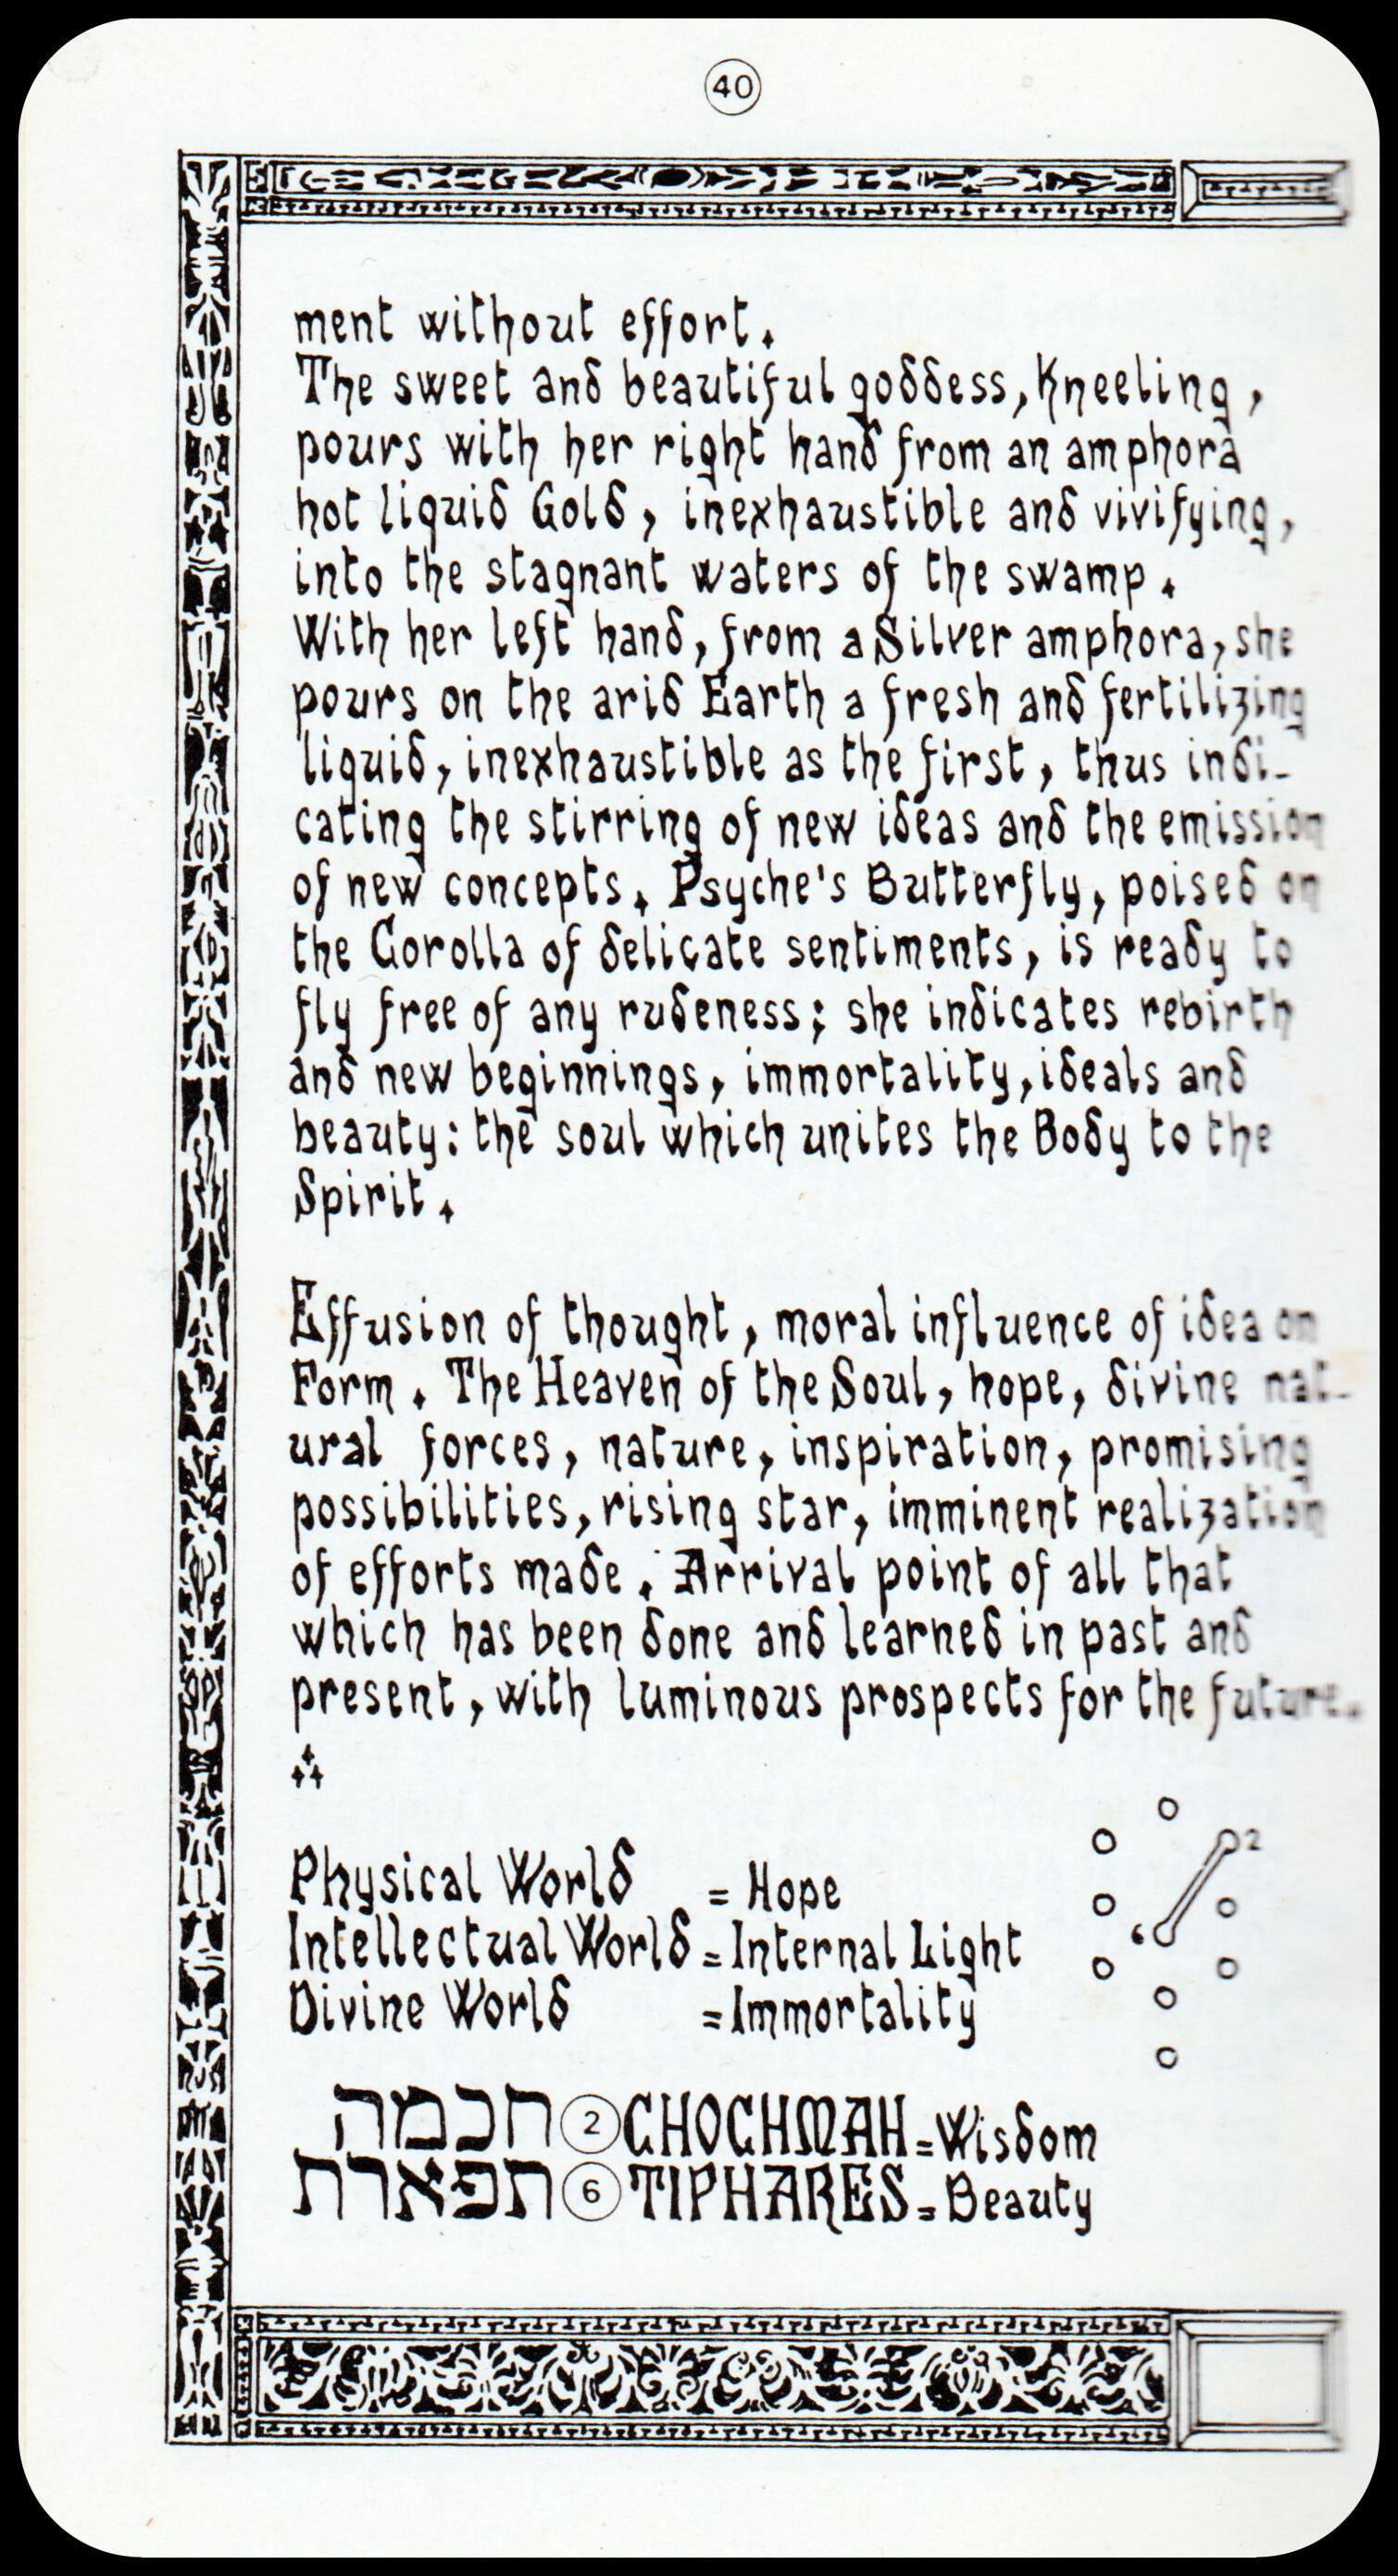 40
ment without effort.
The sweet and beautiful goddess, Kneeling,
pours with her right hand from an amphora
hot liquid Gold, inexhaustible and vivifying,
into the stagnant waters of the swamp.
With her left hand, from a Silver amphora, she
pours on the arid Earth a fresh and fertilizing
liquid, inexhaustible as the first, thus indi-
cating the stirring of new ideas and the emission
of new concepts. Psyche's Butterfly, poised on
the Corolla of delicate sentiments, is ready to
fly free of any rudeness; she indicates rebirth
and new beginnings, immortality, ideals and
beauty: the soul which unites the Body to the
Spirit.
Effusion of thought, moral influence of idea on
Form. The Heaven of the Soul, hope, divine nat-
ural forces, nature, inspiration, promising
possibilities, rising star, imminent realization
of efforts made. Arrival point of all that
which has been done and learned in past and
present, with luminous prospects for the future.
Physical World = Hope
Intellectual World = Internal Light
Divine World = Immortality
2
6
חכמה 2 CHOCHMAH = Wisdom
תפארת 6 TIPHARES = Beauty